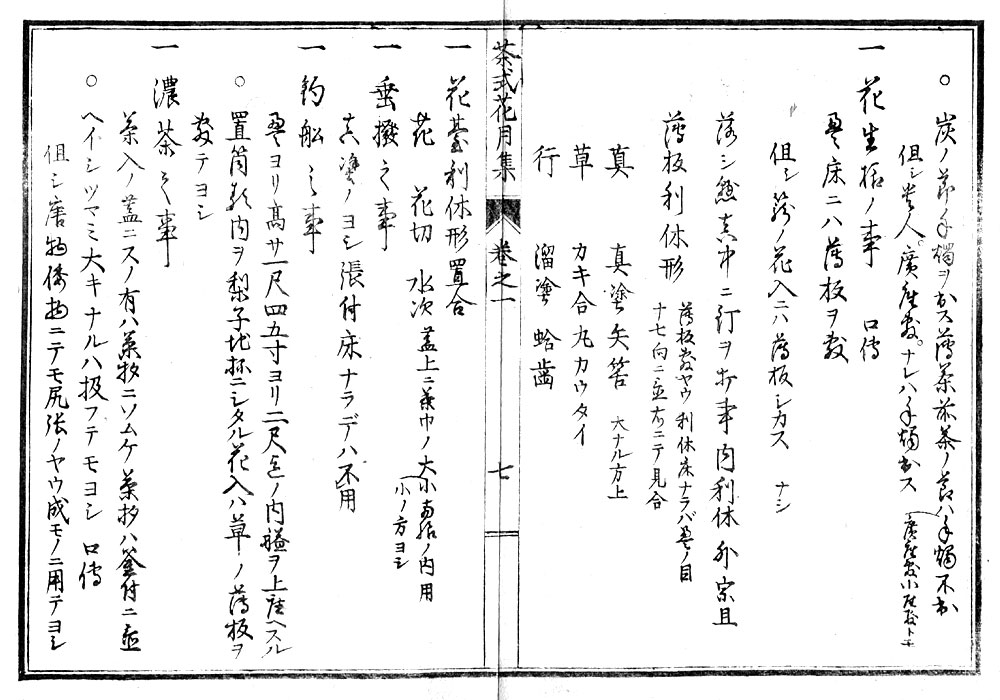 ○ 炭ノ節手燭ヲ出ス薄茶茶ノ節ハ手燭不出
但シ貴人。廣座敷。ナレハ手燭出ス
廣座敷小座敷トモ
一 花生拓ノ事 口傳
畳床ニハ薄板ヲ敷
但シ籠ノ花入ニハ薄板シカス ナシ
落シ懸真中ニ釘ヲ打事内利休外宗旦
薄板利休形
薄板敷ヤウ利休床ナラバ畳ノ目
十七向ニ置右ニテ見合
真 真塗矢筈 大ナル方上
草 カキ合丸カウタイ
行 溜塗蛤歯
茶式花月集 巻之一 七
一 花臺利休形置合
花 花切 水次 蓋上ニ茶巾ノ大小ノ内用
小ノ方ヨシ
一 垂撥之事
真塗ノヨシ張付床ナラデハ不用
一 釣舩之事
畳ヨリ髙サ一尺四五寸ヨリ二尺迄ノ内艫ヲ上座ヘスル
○ 置筒類内ヲ梨子地抔ニシタル花入ハ草ノ薄板ヲ
敷テヨシ
一 濃茶之事
茶入ノ蓋ニスノ有ハ茶杓ニソムケ茶杓ハ釜付ニ置
○ ヘイシツマミ大キナルハ扱フテモヨシ 口傳
但シ唐物倭物ニテモ尻張ノヤウ成モノニ用テヨシ